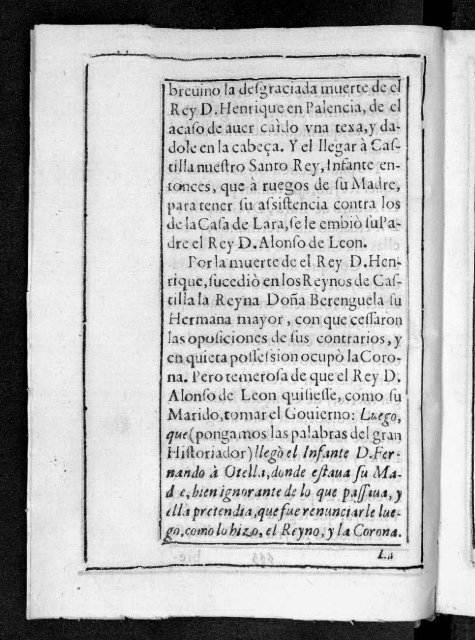 breuino la desgraciada muerte de el
Rey D. Henrique en Palencia, de el
acaso de auer caìdo vna texa, y da-
dole en la cabeça. Y el llegar à Cas-
tilla nuestro Santo Rey, Infante en-
tonces, que à ruegos de su Madre,
para tener su assistencia contra los
de la Casa de Lara, se le embiò su Pa-
dre el Rey D. Alonso de Leon.
Por la muerte de el Rey D. Hen-
rique, sucediò en los Reynos de Cas-
tilla la Reyna Doña Berenguela su
Hermana mayor, con que cessaron
las oposiciones de sus contrarios, y
en quieta possession ocupò la Coro-
na. Pero temerosa de que el Rey D.
Alonso de Leon quisiesse, como su
Marido, tomar el Gouierno: Luego,
que (pongamos las palabras del gran
Historiador) llegò el Infante D. Fer-
nando à Otella, donde estaua su Ma-
d e, bien ignorante de lo que passaua, y
ella pretendia, que fue renunciarle lue-
go, como lo hizo, el Reyno, y la Corona.
La